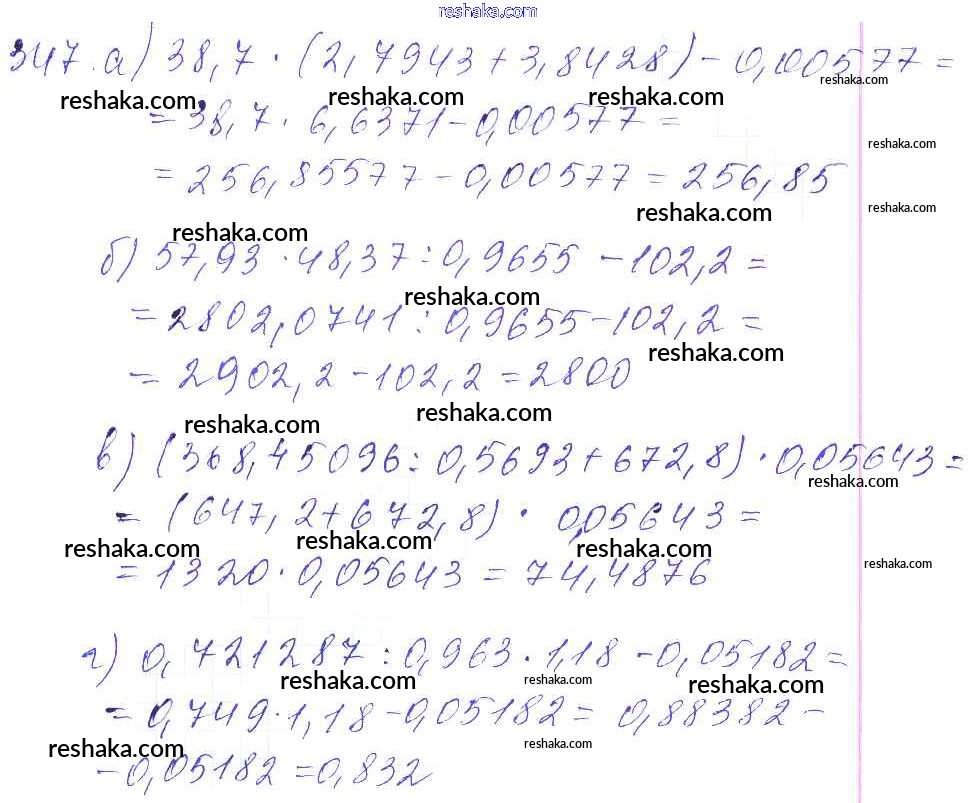 reshaka.com
347. а) 38,7 · (2,7943 + 3,8428) - 0,00577 =
reshaka.com reshaka.com reshaka.com reshaka.com
= 38,7 · 6,6371 - 0,00577 =
reshaka.com
= 256,85577 - 0,00577 = 256,85
reshaka.com reshaka.com
reshaka.com
б) 57,93 · 48,37 : 0,9655 - 102,2 =
reshaka.com
= 2802,0741 : 0,9655 - 102,2 =
reshaka.com
= 2902,2 - 102,2 = 2800
reshaka.com reshaka.com
в) (368,45096 : 0,5693 + 672,8) · 0,05643 =
reshaka.com
= (647,2 + 672,8) · 0,05643 =
reshaka.com reshaka.com reshaka.com
= 1320 · 0,05643 = 74,4876
reshaka.com
г) 0,721287 : 0,963 · 1,18 - 0,05182 =
reshaka.com reshaka.com reshaka.com
= 0,749 · 1,18 - 0,05182 = 0,88382 -
reshaka.com reshaka.com
- 0,05182 = 0,832